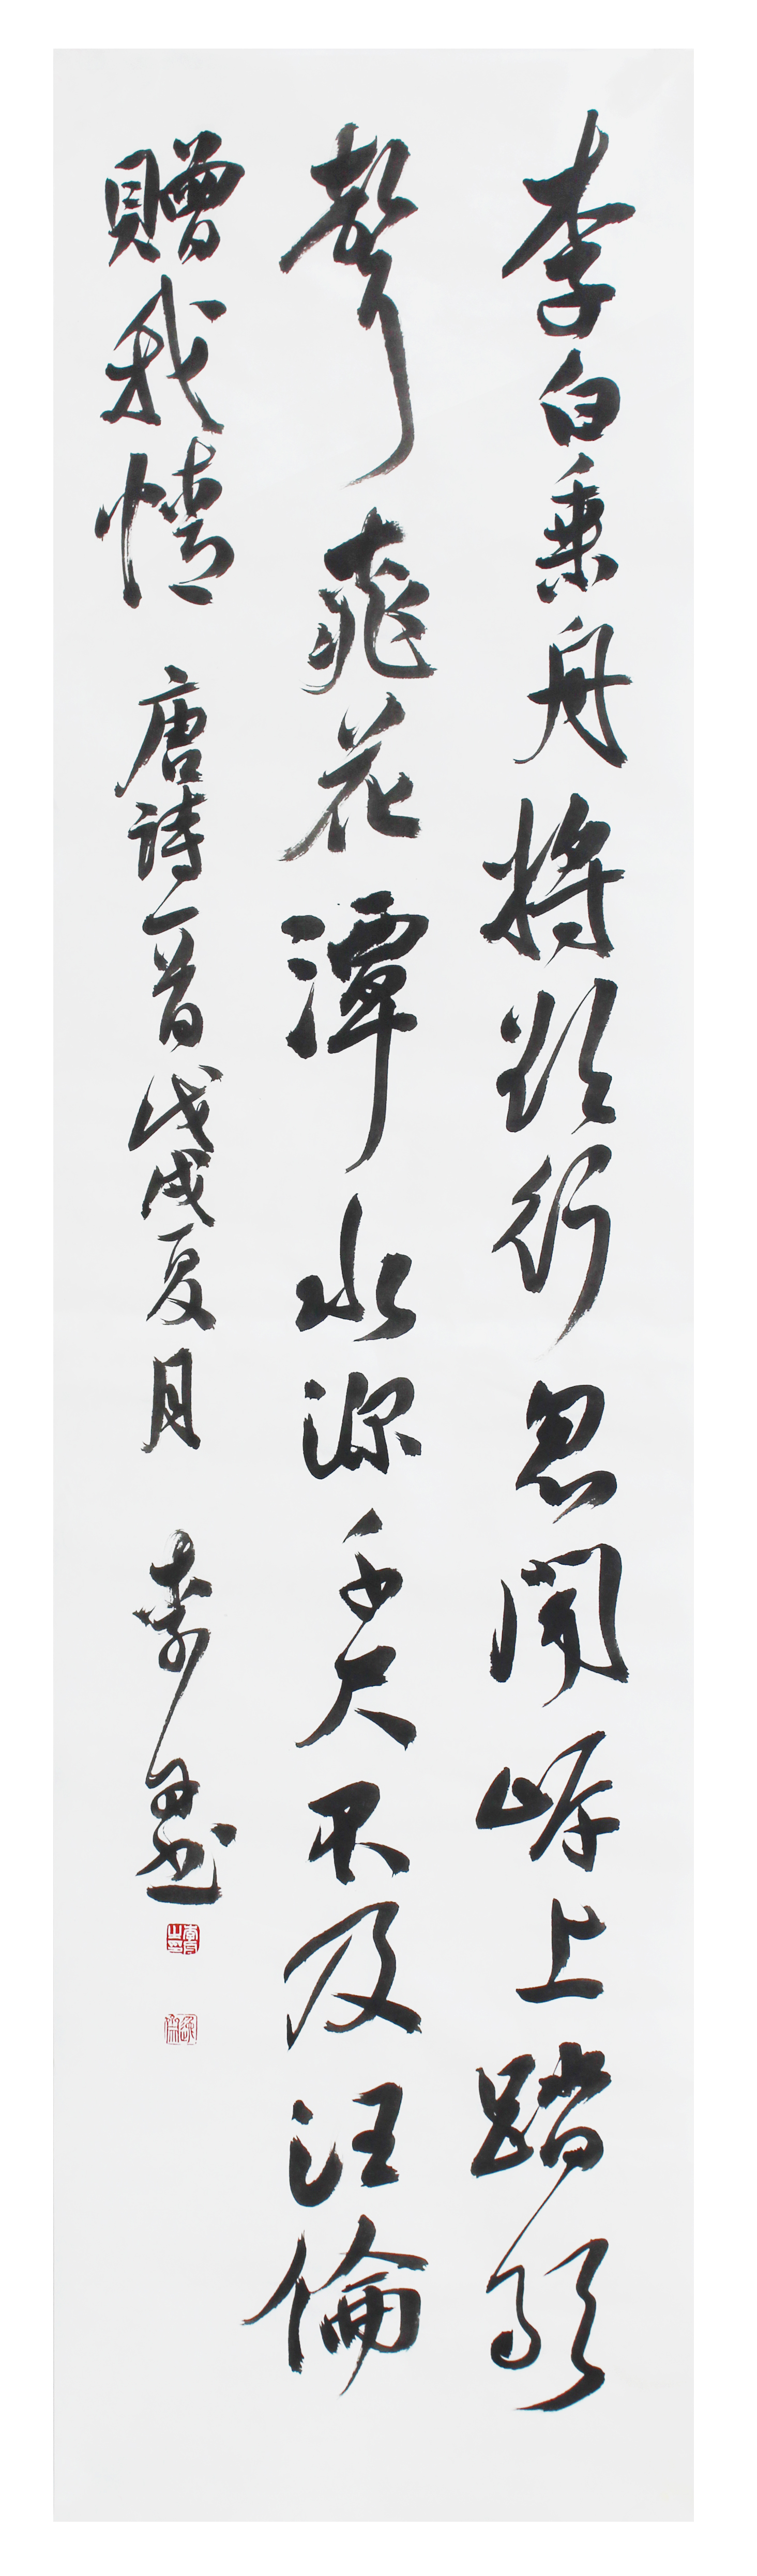 李白乘舟將欲行忽聞岸上踏歌
聲桃花潭水深千尺不及汪倫
贈我情 唐詩一首戊戌夏月 李